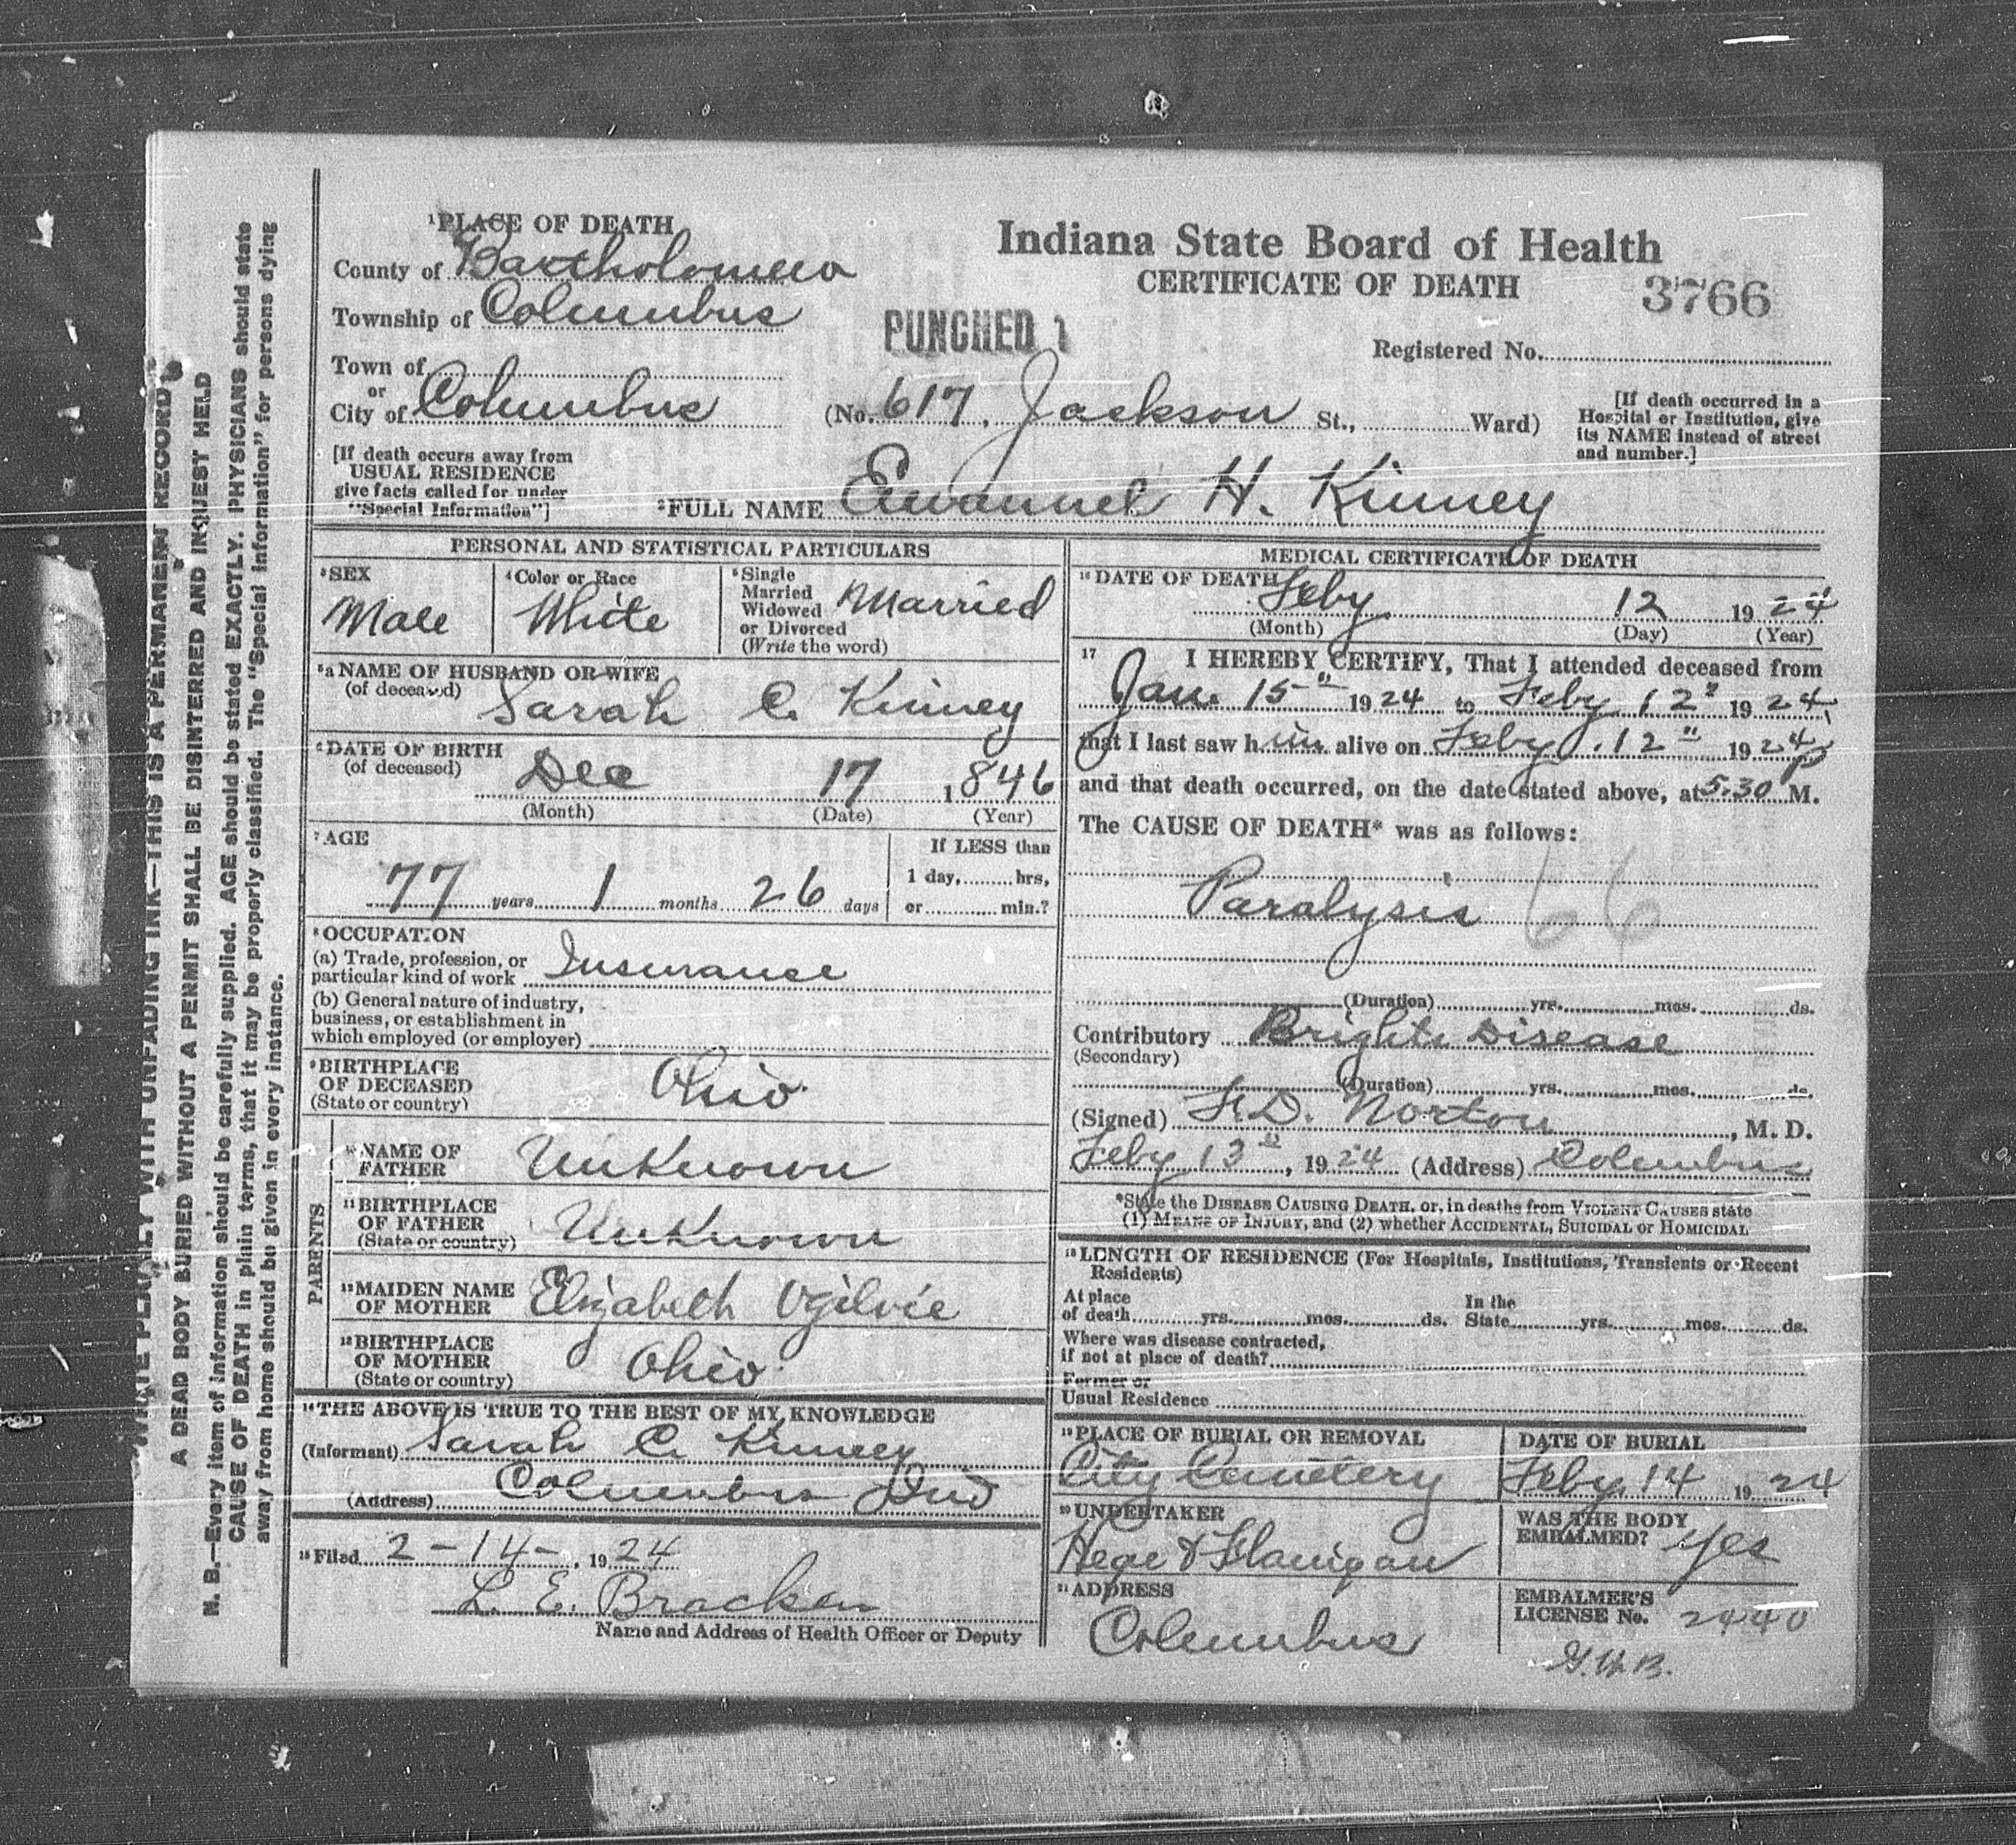 WRITE PLAINLY WITH UNFADING INK—THIS IS A PERMANENT RECORD.
A DEAD BODY BURIED WITHOUT A PERMIT SHALL BE DISINTERRED AND INQUEST HELD
N. B.—Every item of information should be carefully supplied. AGE should be stated EXACTLY. PHYSICIANS should state
CAUSE OF DEATH in plain terms, that it may be properly classified. The "Special Information" for persons dying
away from home should be given in every instance.
Indiana State Board of Health
CERTIFICATE OF DEATH
3766
PUNCHED 1
Registered No.
1 PLACE OF DEATH
County of Bartholomew
Township of Columbus
Town of
or
City of Columbus (No. 617, Jackson St., Ward)
[If death occurred in a
Hospital or Institution, give
its NAME instead of street
and number.]
[If death occurs away from
USUAL RESIDENCE
give facts called for under
"Special Information"]
2 FULL NAME Emanuel H. Kinney
PERSONAL AND STATISTICAL PARTICULARS
3 SEX
Male
4 Color or Race
White
5 Single
Married
Widowed
or Divorced
(Write the word)
Married
5a NAME OF HUSBAND OR WIFE
(of deceased) Sarah C. Kinney
6 DATE OF BIRTH
(of deceased) Dec 17 1846
(Month) (Date) (Year)
7 AGE
77 years 1 months 26 days
If LESS than
1 day, hrs,
or min.?
8 OCCUPATION
(a) Trade, profession, or
particular kind of work Insurance
(b) General nature of industry,
business, or establishment in
which employed (or employer)
9 BIRTHPLACE
OF DECEASED
(State or country) Ohio
PARENTS
10 NAME OF
FATHER Unknown
11 BIRTHPLACE
OF FATHER
(State or country) Unknown
12 MAIDEN NAME
OF MOTHER Elizabeth Ogilvie
13 BIRTHPLACE
OF MOTHER
(State or country) Ohio
14 THE ABOVE IS TRUE TO THE BEST OF MY KNOWLEDGE
(Informant) Sarah C. Kinney
(Address) Columbus Ind
15 Filed 2-14-, 1924
L. E. Bracken
Name and Address of Health Officer or Deputy
MEDICAL CERTIFICATE OF DEATH
16 DATE OF DEATH
Feby 12 1924
(Month) (Day) (Year)
17 I HEREBY CERTIFY, That I attended deceased from
Jan. 15" 1924 to Feby 12" 1924,
that I last saw him alive on Feby 12" 1924
and that death occurred, on the date stated above, at 5.30 P M.
The CAUSE OF DEATH* was as follows:
Paralysis 66
(Duration) yrs. mos. ds.
Contributory Brights Disease
(Secondary)
(Duration) yrs. mos. ds.
(Signed) F. D. Norton, M. D.
Feby 13", 1924 (Address) Columbus
*State the DISEASE CAUSING DEATH, or, in deaths from VIOLENT CAUSES state
(1) MEANS OF INJURY, and (2) whether ACCIDENTAL, SUICIDAL or HOMICIDAL
18 LENGTH OF RESIDENCE (For Hospitals, Institutions, Transients or Recent
Residents)
At place
of death yrs. mos. ds.
In the
State yrs. mos. ds.
Where was disease contracted,
if not at place of death?
Former or
Usual Residence
19 PLACE OF BURIAL OR REMOVAL
City Cemetery
DATE OF BURIAL
Feby 14 1924
20 UNDERTAKER
Hege & Flanigan
WAS THE BODY
EMBALMED? Yes
21 ADDRESS
Columbus
EMBALMER'S
LICENSE No. 2440